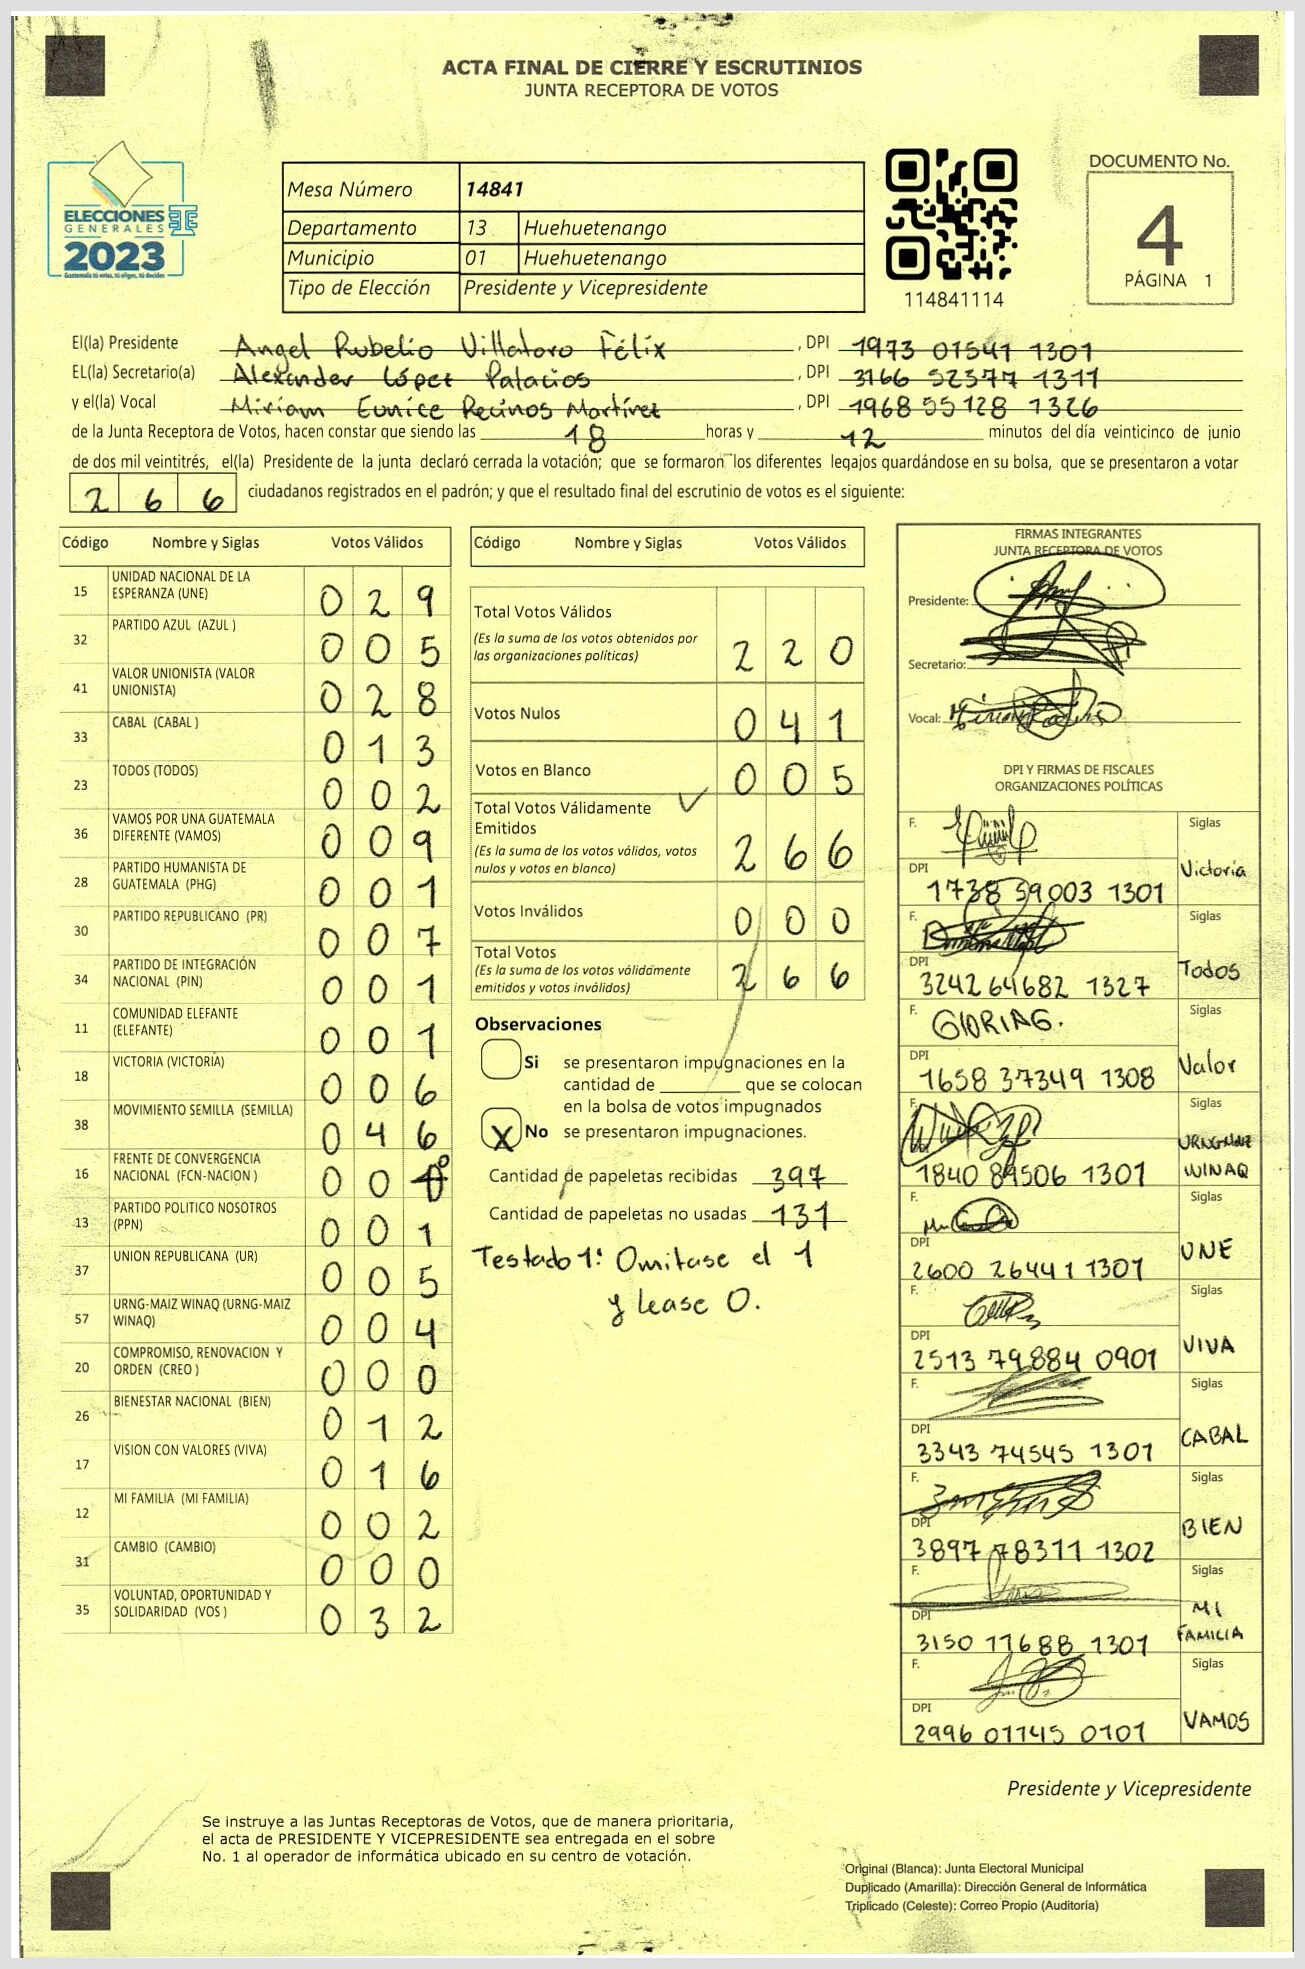 ACTA FINAL DE CIERRE Y ESCRUTINIOS
JUNTA RECEPTORA DE VOTOS
ELECCIONES
GENERALES
2023
Guatemala tú votas, tú eliges, tú decides
Mesa Número 14841
Departamento 13 Huehuetenango
Municipio 01 Huehuetenango
Tipo de Elección Presidente y Vicepresidente
114841114
DOCUMENTO No.
4
PÁGINA 1
El(la) Presidente Angel Rubelio Villatoro Félix, DPI 1973 01541 1301
EL(la) Secretario(a) Alexánder López Palacios, DPI 3166 52377 1311
y el(la) Vocal Miriam Eunice Recinos Martínez, DPI 1968 55128 1326
de la Junta Receptora de Votos, hacen constar que siendo las 18 horas y 12 minutos del día veinticinco de junio
de dos mil veintitrés, el(la) Presidente de la junta declaró cerrada la votación; que se formaron los diferentes legajos quardándose en su bolsa, que se presentaron a votar
266 ciudadanos registrados en el padrón; y que el resultado final del escrutinio de votos es el siguiente:
Código Nombre y Siglas Votos Válidos
15 UNIDAD NACIONAL DE LA ESPERANZA (UNE) 0 2 9
32 PARTIDO AZUL (AZUL ) 0 0 5
41 VALOR UNIONISTA (VALOR UNIONISTA) 0 2 8
33 CABAL (CABAL ) 0 1 3
23 TODOS (TODOS) 0 0 2
36 VAMOS POR UNA GUATEMALA DIFERENTE (VAMOS) 0 0 9
28 PARTIDO HUMANISTA DE GUATEMALA (PHG) 0 0 1
30 PARTIDO REPUBLICANO (PR) 0 0 7
34 PARTIDO DE INTEGRACIÓN NACIONAL (PIN) 0 0 1
11 COMUNIDAD ELEFANTE (ELEFANTE) 0 0 1
18 VICTORIA (VICTORIA) 0 0 6
38 MOVIMIENTO SEMILLA (SEMILLA) 0 4 6
16 FRENTE DE CONVERGENCIA NACIONAL (FCN-NACION ) 0 0 0
13 PARTIDO POLITICO NOSOTROS (PPN) 0 0 1
37 UNION REPUBLICANA (UR) 0 0 5
57 URNG-MAIZ WINAQ (URNG-MAIZ WINAQ) 0 0 4
20 COMPROMISO, RENOVACION Y ORDEN (CREO ) 0 0 0
26 BIENESTAR NACIONAL (BIEN) 0 1 2
17 VISION CON VALORES (VIVA) 0 1 6
12 MI FAMILIA (MI FAMILIA) 0 0 2
31 CAMBIO (CAMBIO) 0 0 0
35 VOLUNTAD, OPORTUNIDAD Y SOLIDARIDAD (VOS ) 0 3 2
Código Nombre y Siglas Votos Válidos
Total Votos Válidos
(Es la suma de los votos obtenidos por
las organizaciones políticas) 2 2 0
Votos Nulos 0 4 1
Votos en Blanco 0 0 5
Total Votos Válidamente
Emitidos
(Es la suma de los votos válidos, votos
nulos y votos en blanco) 2 6 6
Votos Inválidos 0 0 0
Total Votos
(Es la suma de los votos válidamente
emitidos y votos inválidos) 2 6 6
Observaciones
Si se presentaron impugnaciones en la
cantidad de ________ que se colocan
en la bolsa de votos impugnados
X No se presentaron impugnaciones.
Cantidad de papeletas recibidas 397
Cantidad de papeletas no usadas 131
Testado 1: Omitase el 1
y lease 0.
FIRMAS INTEGRANTES
JUNTA RECEPTORA DE VOTOS
Presidente:
Secretario:
Vocal:
DPI Y FIRMAS DE FISCALES
ORGANIZACIONES POLÍTICAS
F. Siglas
DPI 1738 59003 1301 Victoria
F. Siglas
DPI 3242 64682 1327 Todos
F. GLORIAG. Siglas
DPI 1658 37349 1308 Valor
F. Siglas
DPI 1840 89506 1301 URNG MAIZ WINAQ
F. Siglas
DPI 2600 26441 1301 UNE
F. Siglas
DPI 2513 79884 0901 VIVA
F. Siglas
DPI 3343 74545 1301 CABAL
F. Siglas
DPI 3897 78311 1302 BIEN
F. Siglas
DPI 3150 11688 1301 MI FAMILIA
F. Siglas
DPI 2996 01145 0101 VAMOS
Presidente y Vicepresidente
Se instruye a las Juntas Receptoras de Votos, que de manera prioritaria,
el acta de PRESIDENTE Y VICEPRESIDENTE sea entregada en el sobre
No. 1 al operador de informática ubicado en su centro de votación.
Original (Blanca): Junta Electoral Municipal
Duplicado (Amarilla): Dirección General de Informática
Triplicado (Celeste): Correo Propio (Auditoría)